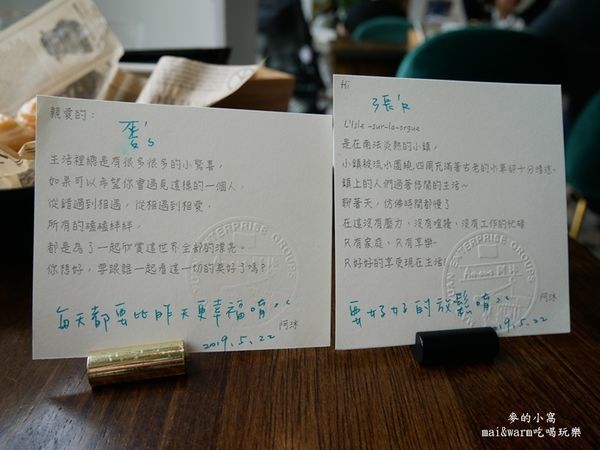 親愛的：
蛋's
生活裡總是有很多很多的小驚喜,
如果可以希望你會遇見這樣的一個人,
從錯過到相遇, 從相遇到相愛.
所有的磕磕絆絆.
都是為了一起欣賞這世界全部的漂亮。
你想好, 要跟誰一起看這一切的美好了嗎?
每天都要比昨天更幸福唷
阿沐
2019.5.22
Hi
L'Isle -sur-la-orgue
是在南法炎熱的小鎮,
小鎮被流水圍繞,四周充滿著古老的水車卻十分清涼.
鎮上的人們過著悠閒的生活~
聊著天, 彷彿時間都慢了
在這沒有壓力、沒有喧擾、沒有工作的忙碌
只有家庭、只有享樂-
只好好的享受現在生活!
要好好的放鬆唷
阿沐
2019.5.22
ENTERPRISE GROUPS
ENTERPRISE GROUPS
麥的小窩
mai&warm吃喝玩樂